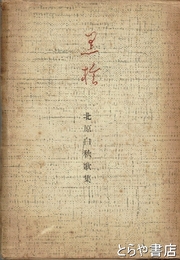 黒桧
北原白秋歌集
とらや書店